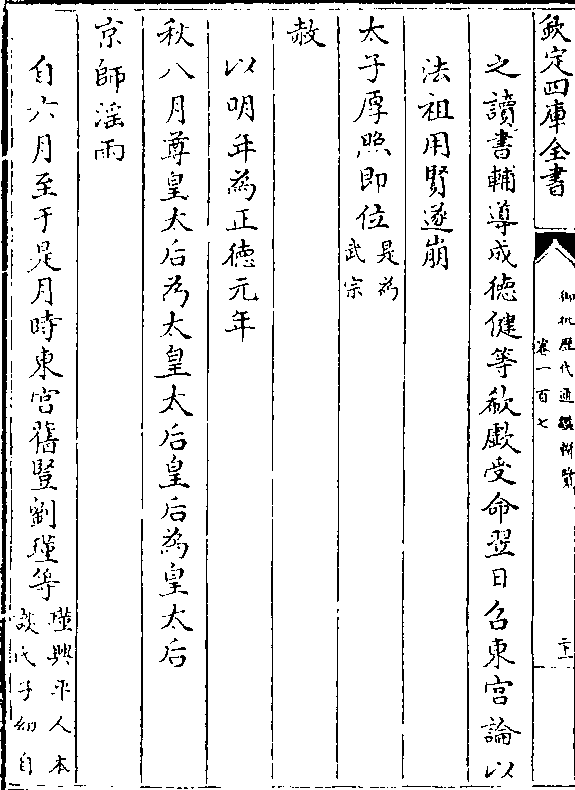 欽定四庫全書
御批歷代通鑑輯覽
卷一百七
二十一
之讀書輔導成德健等欷歔受命翌日召東宮論以
法祖用賢遂崩
太子厚照即位是為
武宗
赦
以明年為正德元年
秋八月尊皇太后為太皇太后皇后為皇太后
京師淫雨
自六月至于是月時東宮舊豎劉瑾等瑾興平人本
談氏子幼自